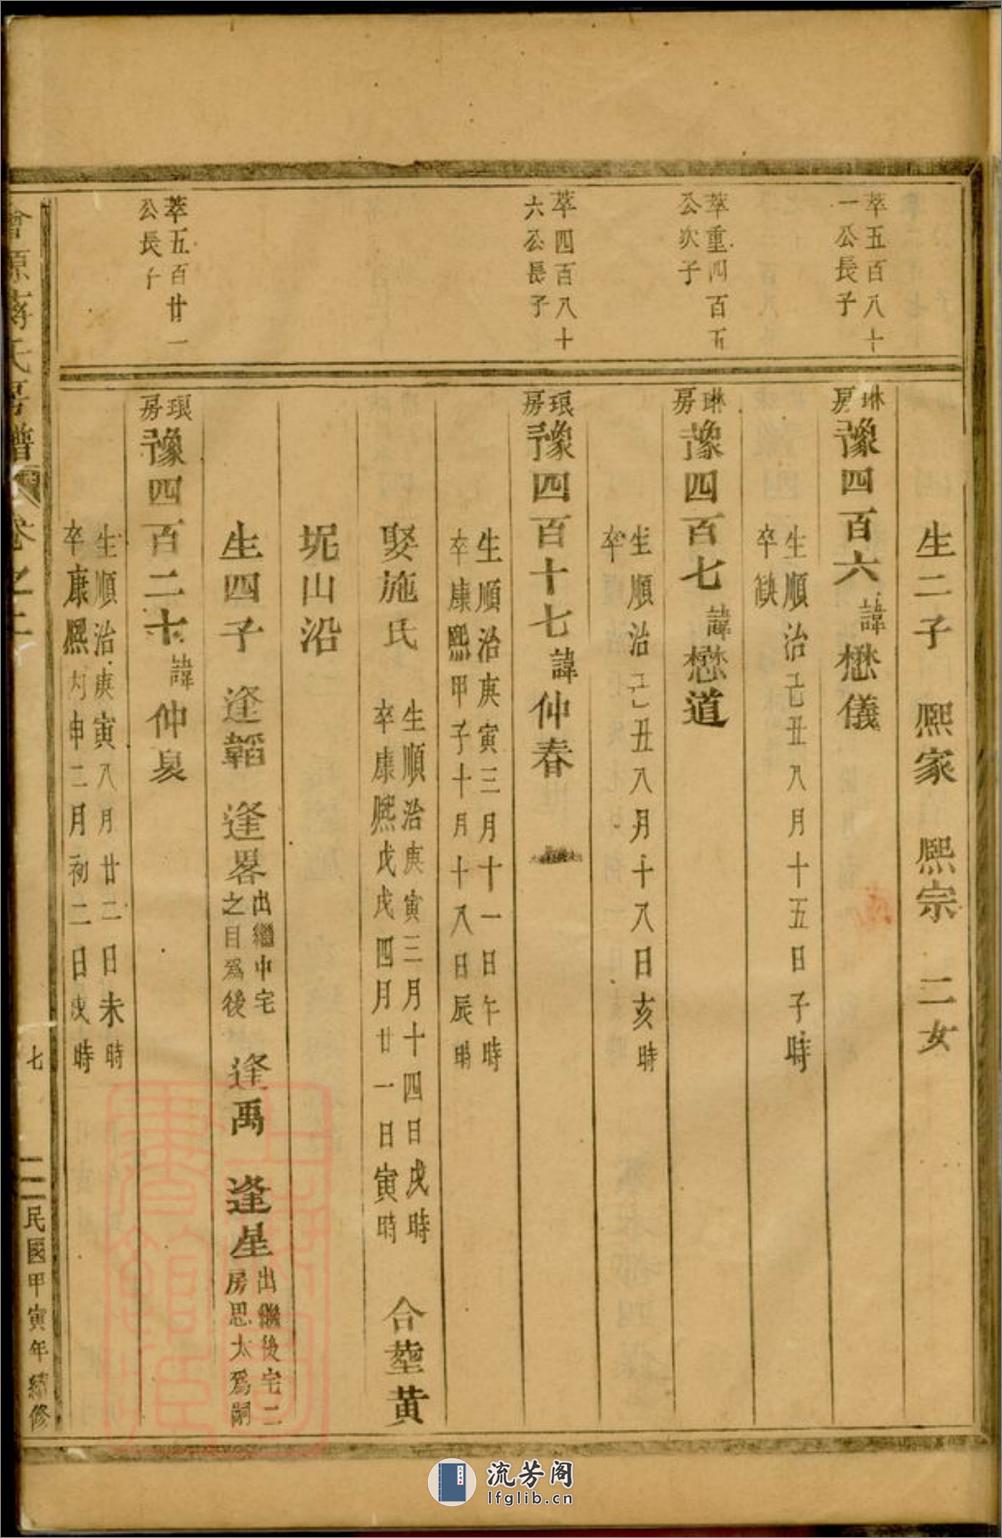 生二子 熙家 熙宗 二女
萃五百八十
一公長子
琳房豫四百六諱懋儀
生順治己丑八月十五日子時
卒缺
萃重四百五
公次子
琳房豫四百七諱懋道
生順治己丑八月十八日亥時
卒
萃四百八十
六公長子
琅房豫四百十七諱仲春
生順治庚寅三月十一日午時
卒康熙甲子十月十八日辰時
娶施氏
生順治庚寅三月十四日戌時
卒康熙戊戌四月廿一日寅時
合塟黄
坭山沿
生四子 逢韜 逢畧
出繼中宅
之目為後
逢禹 逢星
出繼後宅二
房思太為嗣
萃五百廿一
公長子
琅房豫四百二十諱仲
生順治庚寅八月廿二日未時
卒康熙丙申二月初二日戌時
會源蔣氏房譜
卷之
七
民國甲寅年續修
流芳阁
lfglib.cn